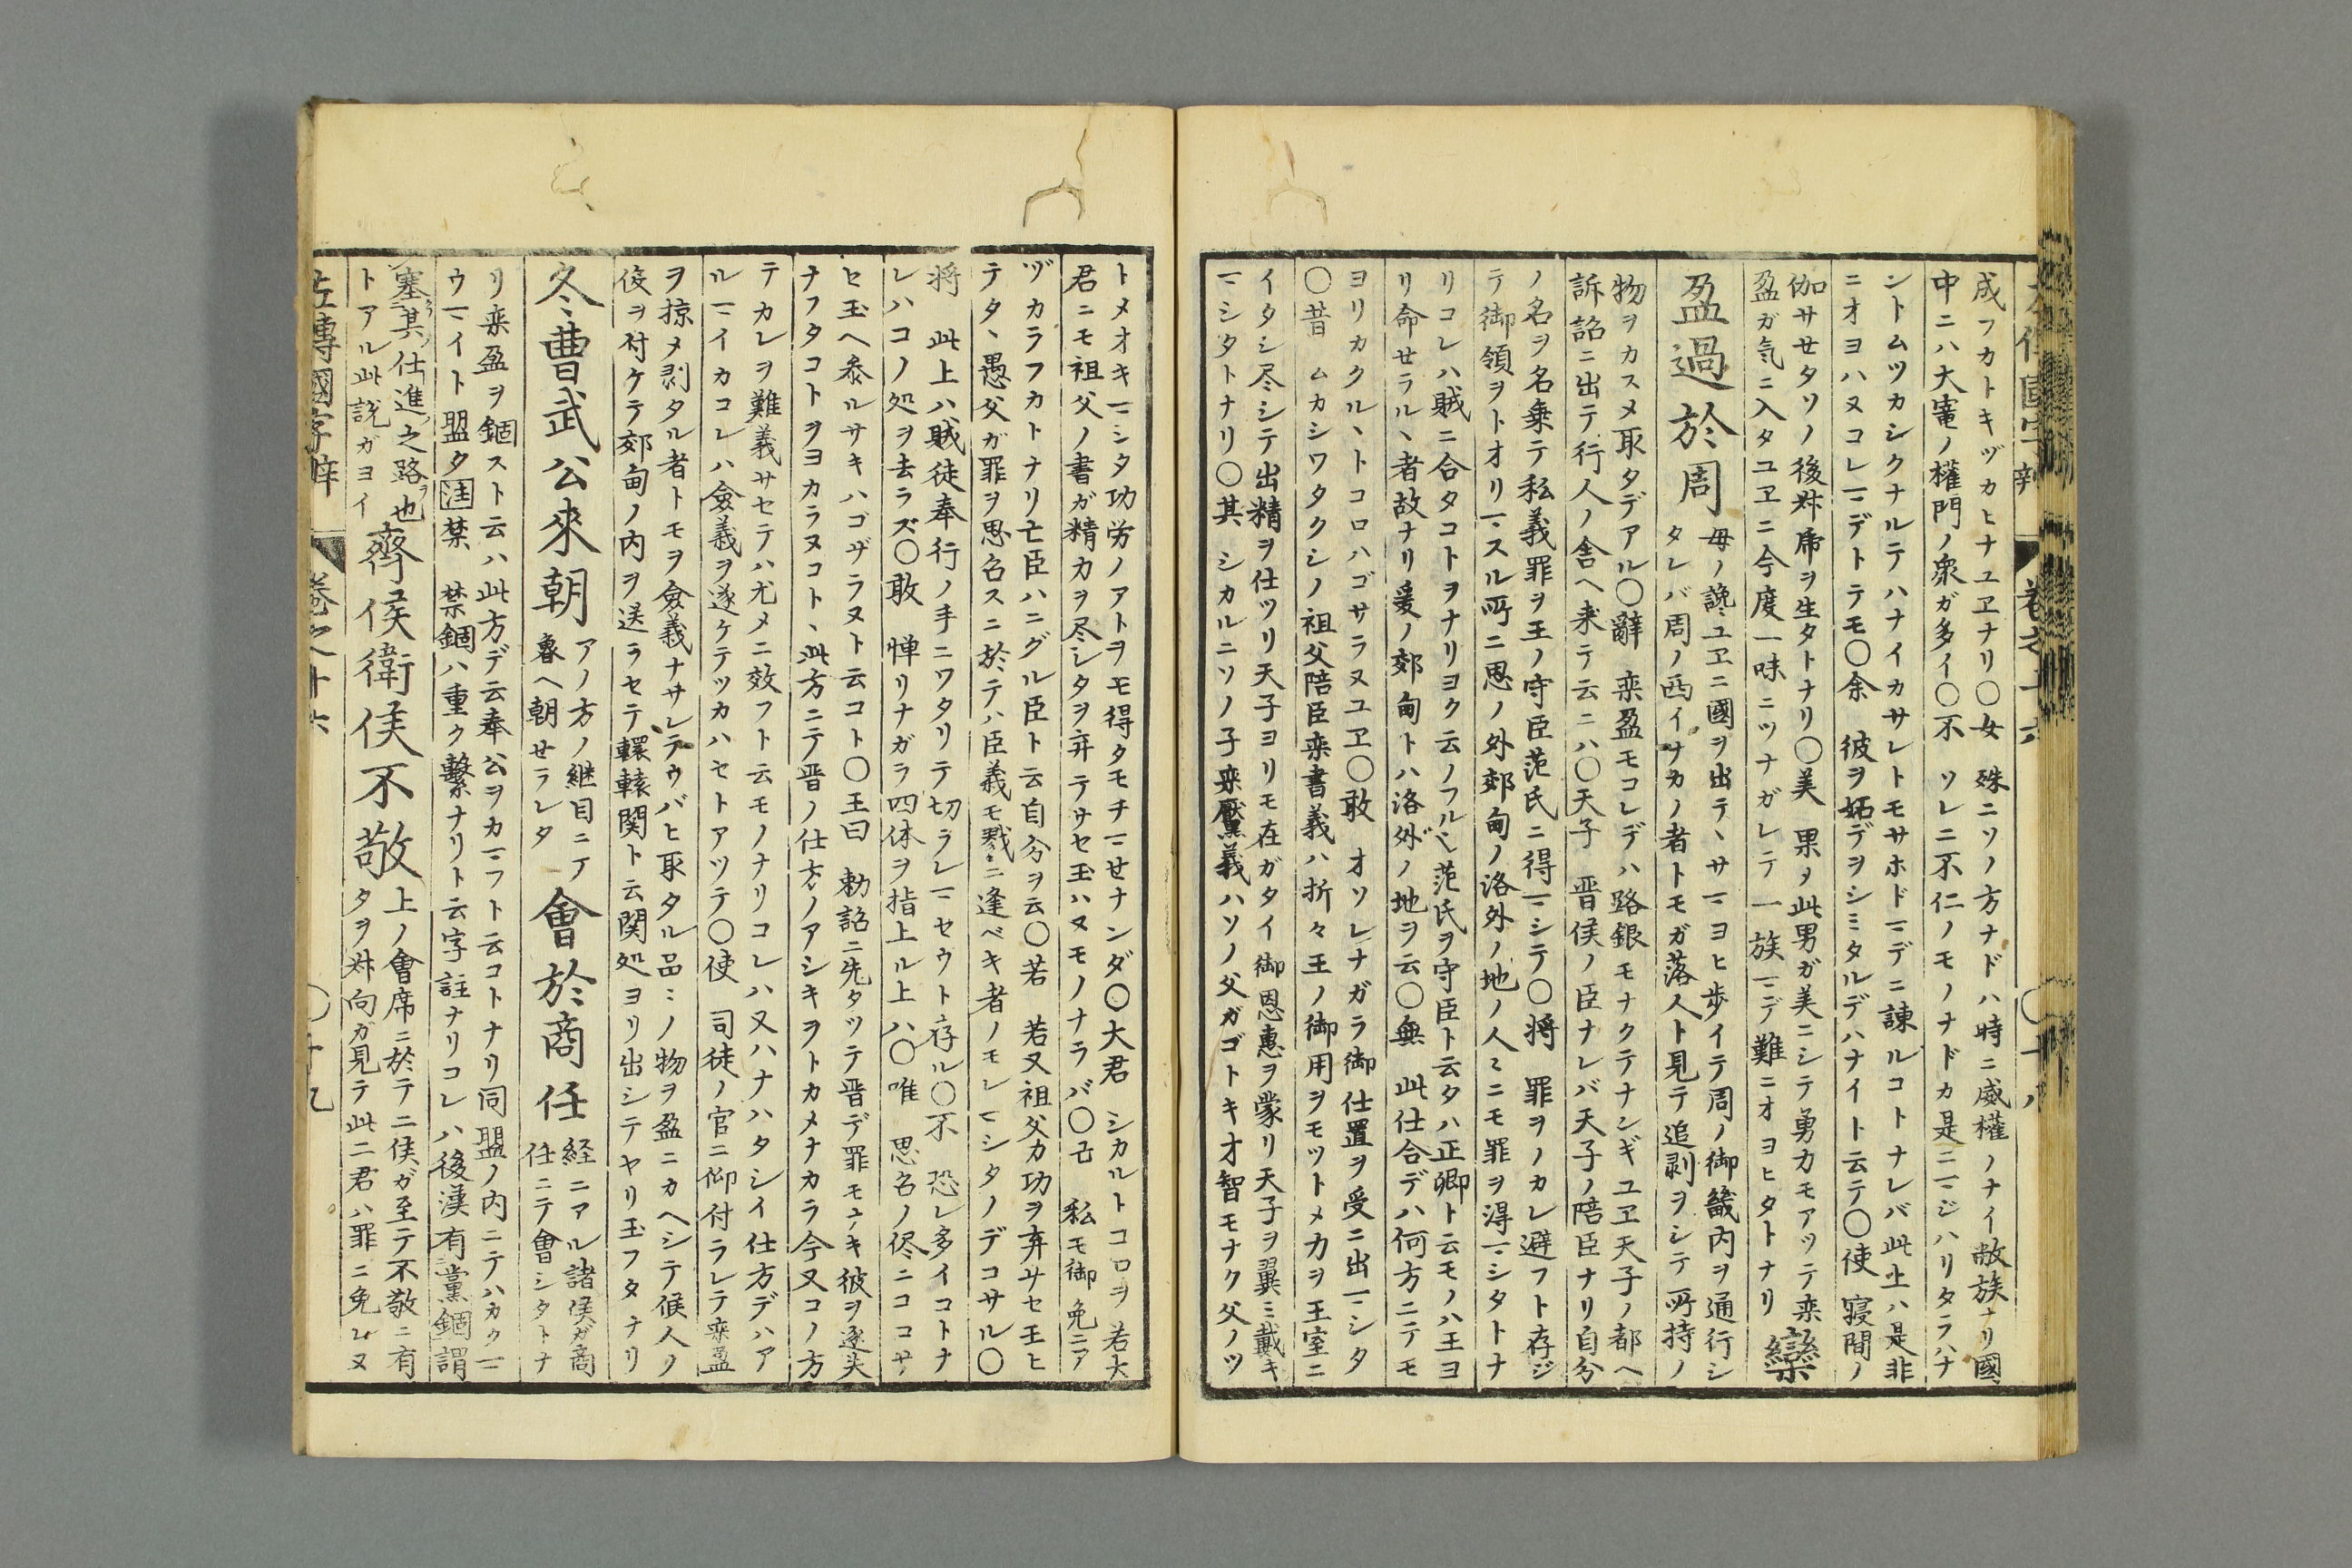 左傳國字辨 巻之十六 〇十八
成フカトキヅカヒナユヱナリ〇女 殊ニソノ方ナドハ時ニ威權ノナイ敝族ナリ國
中ニハ大寵ノ權門ノ衆ガ多イ〇不 ソレニ不仁ノモノナドカ是ニマジハリタラハナ
ントムツカシクナルテハナイカサレトモサホドマデニ諌ルコトナレバ此上ハ是非
ニオヨハヌコレマデトテモ〇余 彼ヲ妬デヲシミタルデハナイト云テ〇使 寝間ノ
伽サセタソノ後叔席ヲ生タトナリ〇美 果ヲ此男ガ美ニシテ勇力モアッテ栾
盈ガ気ニ入タユヱニ今度一味ニツナガレテ一族マデ難ニオヨヒタトナリ 欒
盈過於周
母ノ讒ユヱニ國ヲ出テヽサマヨヒ歩イテ周ノ御畿内ヲ通行シ
タレバ周ノ西イナカノ者トモガ落人ト見テ追剥ヲシテ所持ノ
物ヲカスメ取タデアル〇辭 栾盈モコレデハ路銀モナクテナンギユヱ天子ノ都ヘ
訴詔ニ出テ行人ノ舎ヘ来テ云ニハ〇天子 晋侯ノ臣ナレバ天子ノ陪臣ナリ自分
ノ名ヲ名乗テ私義罪ヲ王ノ守臣范氏ニ得マシテ〇将 罪ヲノカレ避フト存ジ
テ御領ヲトオリマスル所ニ思ノ外郊甸ノ洛外ノ地ノ人ミニモ罪ヲ淂マシタトナ
リコレハ賊ニ合タコトヲナリヨク云ノフル乀范氏ヲ守臣ト云タハ正卿ト云モノハ王ヨ
リ命セラルヽ者故ナリ爰ノ郊甸トハ洛外ノ地ヲ云〇無 此仕合デハ何方ニテモ
ヨリカクルヽトコロハゴサラヌユヱ〇敢 オソレナガラ御仕置ヲ受ニ出マシタ
〇昔 ムカシワタクシノ祖父陪臣栾書義ハ折々王ノ御用ヲモツトメ力ヲ王室ニ
イタシ尽シテ出精ヲ仕ツリ天子ヨリモ在ガタイ御恩惠ヲ蒙リ天子ヲ翼ミ戴キ
マシタトナリ〇其 シカルニソノ子栾黶義ハソノ父ガゴトキオ智モナク父ノツ
トメオキマシタ功労ノアトヲモ得タモチマセナンダ〇大君 シカルトコロヲ若大
君ニモ祖父ノ書ガ精力ヲ尽シタヲ弃テサセ玉ハヌモノナラバ〇亡 私モ御免ニア
ヅカラフカトナリ亡臣ハニグル臣ト云自分ヲ云〇若 若又祖父カ功ヲ弃サセ玉ヒ
テタヽ愚父ガ罪ヲ思召スニ於テハ臣義モ戮ニ逢ベキ者ノモレマシタノデコサル〇
将 此上ハ賊徒奉行ノ手ニワタリテ切ラレマセウト存ル〇不 恐レ多イコトナ
レハコノ処ヲ去ラズ〇敢 憚リナガラ四体ヲ指上ル上ハ〇唯 思召ノ侭ニココサ
セ玉ヘ叅ルサキハゴザラヌト云コト〇王曰 勅詔ニ先タツテ晋デ罪モナキ彼ヲ逐失
ナフタコトヲヨカラヌコトヽ此方ニテ晋ノ仕方ノアシキヲトカメナカラ今又コノ方
テカレヲ難義サセテハ尤メニ效フト云モノナリコレハ又ハナハタシイ仕方デハア
ルマイカコレハ僉義ヲ遂ケテツカハセトアツテ〇使 司徒ノ官ニ仰付ラレテ栾盈
ヲ掠メ剥タル者トモヲ僉義ナサレテウバヒ取タル品ミノ物ヲ盈ニカヘシテ候人ノ
役ヲ付ケテ郊甸ノ内ヲ送ラセテ轘轅関ト云関処ヨリ出シテヤリ玉フタナリ
冬曹武公來朝
アノ方ノ継目ニア
魯ヘ朝セラレタ
會於商任
経ニアル諸侯ガ商
任ニテ會シタトナ
リ栾盈ヲ錮スト云ハ此方デ云奉公ヲカマフト云コトナリ同盟ノ内ニテハカクマ
ウマイト盟タ注禁 禁錮ハ重ク繋ナリト云字註ナリコレハ後漢有黨錮謂
塞其仕進之路也
トアル此説ガヨイ
齊侯衛侯不敬
上ノ會席ニ於テ二侯ガ至テ不敬ニ有
タヲ叔向ガ見テ此二君ハ罪ニ免レヌ
左傳國字辨 巻之十六 〇十九